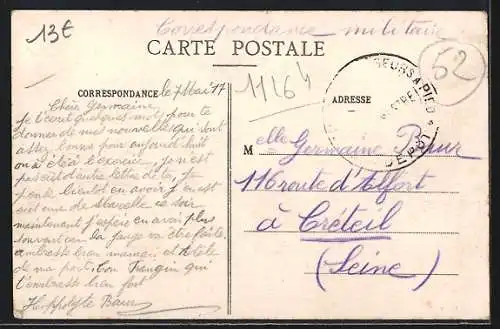 13€
Correspondance militaire
CARTE POSTALE
52
CORRESPONDANCE
le 7 Mai 17
11264
ADRESSE
Chère Germaine
Je t'écrit quelques mots pour te
donner de mes nouvelles qui sont
assez bonne pour aujourd'huit
on a été à l'exercice, je n'est
pas eut d'autre lettre de toi, je
pense bientôt en avoir j'en est
eut une de Marcelle ce soir
maintenant j'espère en avoir plus
souvent car la
embrasse bien maman et
de ma part. Ton frangin qui
t'embrasse bien fort
Hippolyte Baur
M elle Germaine Baur
116 route d'Alfort
à Creteil
(Seine)